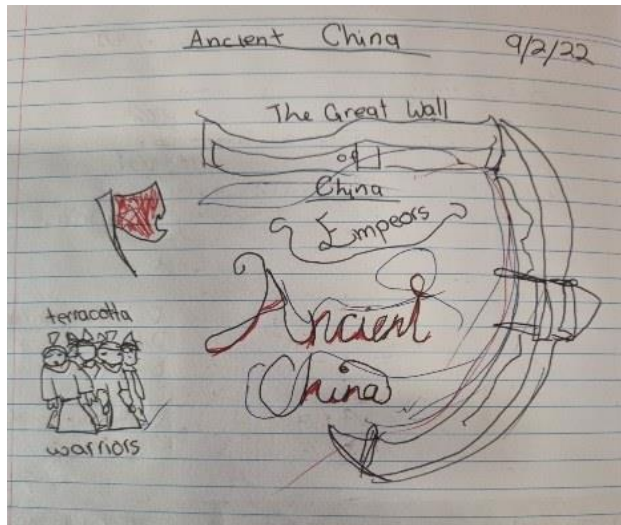 Ancient China
9/2/22
The Great Wall
of
China
Empeors
Ancient
China
terracotta
warriors